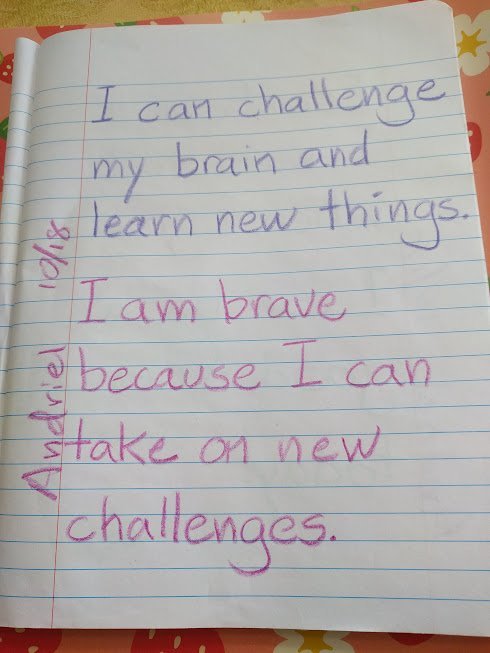 I can challenge
my brain and
learn new things.
I am brave
because I can
take on new
challenges.
Andriel 10/18